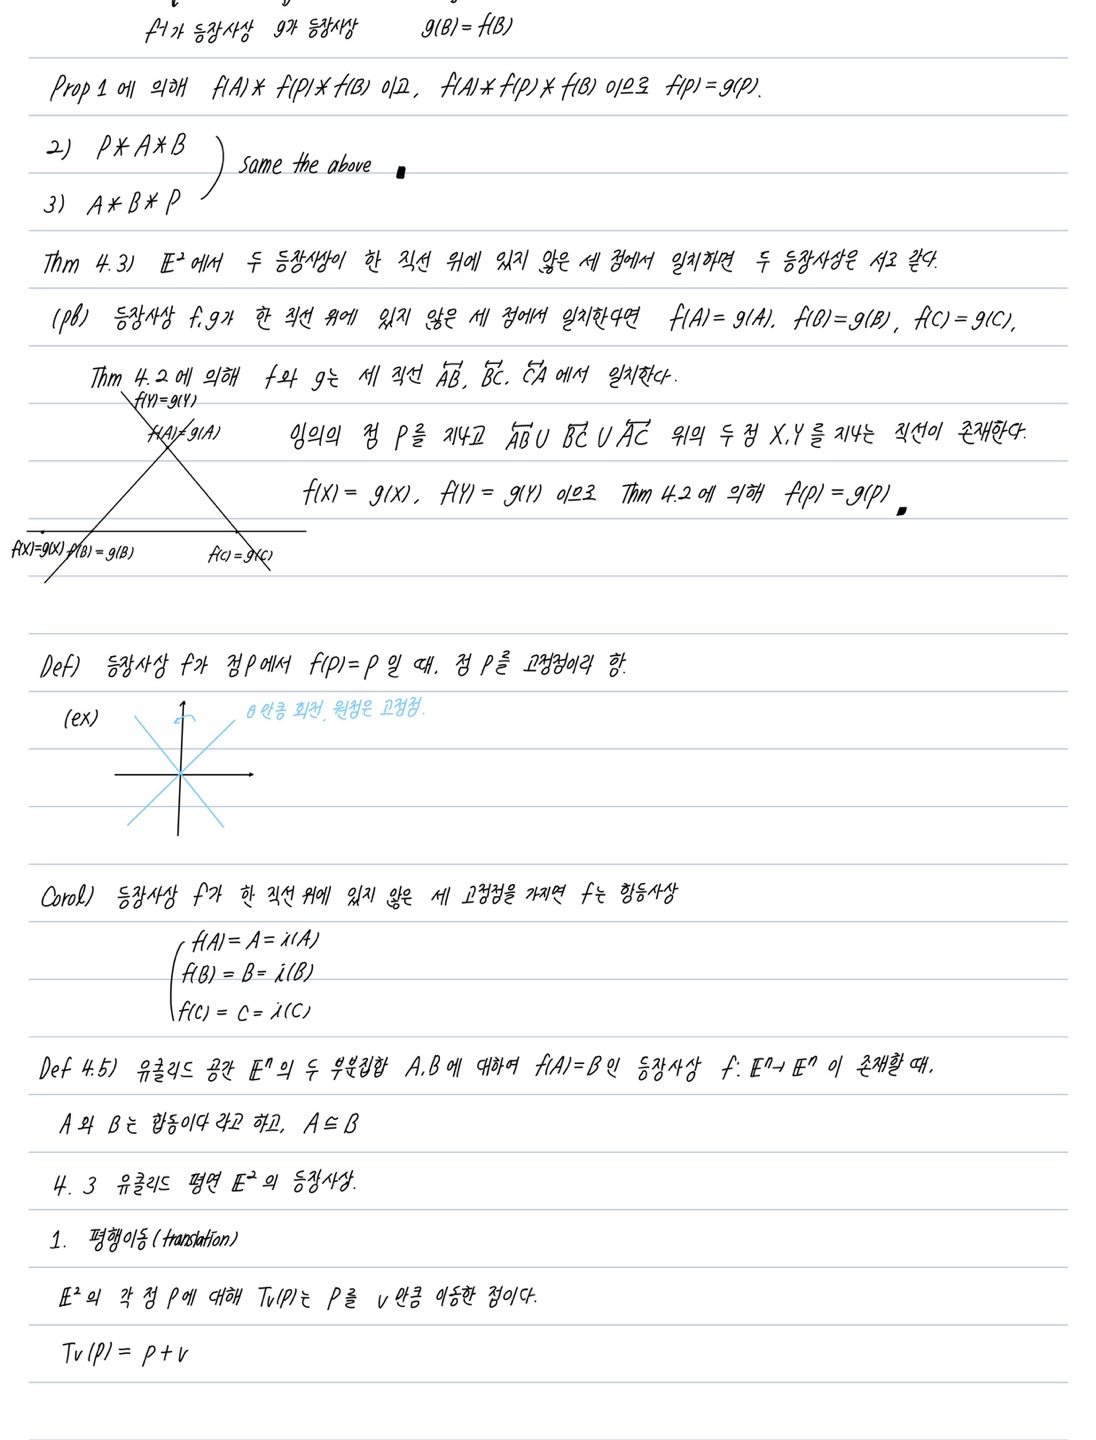 f가 등장사상 g가 등장사상 g(B) = f(B)
Prop 1 에 의해 f(A) * f(P) * f(B) 이고, f(A) * f(p) * f(B) 이므로 f(p) = g(p).
2) P * A * B
same the above
3) A * B * P
Thm 4.3) E² 에서 두 등장사상이 한 직선 위에 있지 않은 세 점에서 일치하면 두 등장사상은 서로 같다.
(pf) 등장사상 f, g가 한 직선 위에 있지 않은 세 점에서 일치한다면 f(A) = g(A). f(B) = g(B), f(C) = g(C),
Thm 4.2 에 의해 f와 g는 세 직선 AB, BC, CA 에서 일치한다.
f(Y) = g(Y)
f(A) = g(A)
임의의 점 P를 지나고 AB ∪ BC ∪ AC 위의 두 점 X, Y를 지나는 직선이 존재한다.
f(X) = g(X), f(Y) = g(Y) 이므로 Thm 4.2 에 의해 f(p) = g(p)
f(X) = g(X) f(B) = g(B) f(C) = g(C)
Def) 등장사상 f가 점 P에서 f(p) = P 일 때, 점 P를 고정점이라 함.
(ex) θ만큼 회전, 원점은 고정점.
Corol) 등장사상 f가 한 직선 위에 있지 않은 세 고정점을 가지면 f는 항등사상
f(A) = A = i(A)
f(B) = B = i(B)
f(C) = C = i(C)
Def 4.5) 유클리드 공간 Eⁿ의 두 부분집합 A, B에 대하여 f(A) = B인 등장사상 f: Eⁿ → Eⁿ 이 존재할 때,
A와 B는 합동이다 라고 하고, A ≅ B
4. 3 유클리드 평면 E²의 등장사상.
1. 평행이동 (translation)
E²의 각 점 P에 대해 Tv(P)는 P를 v만큼 이동한 점이다.
Tv(P) = P + v